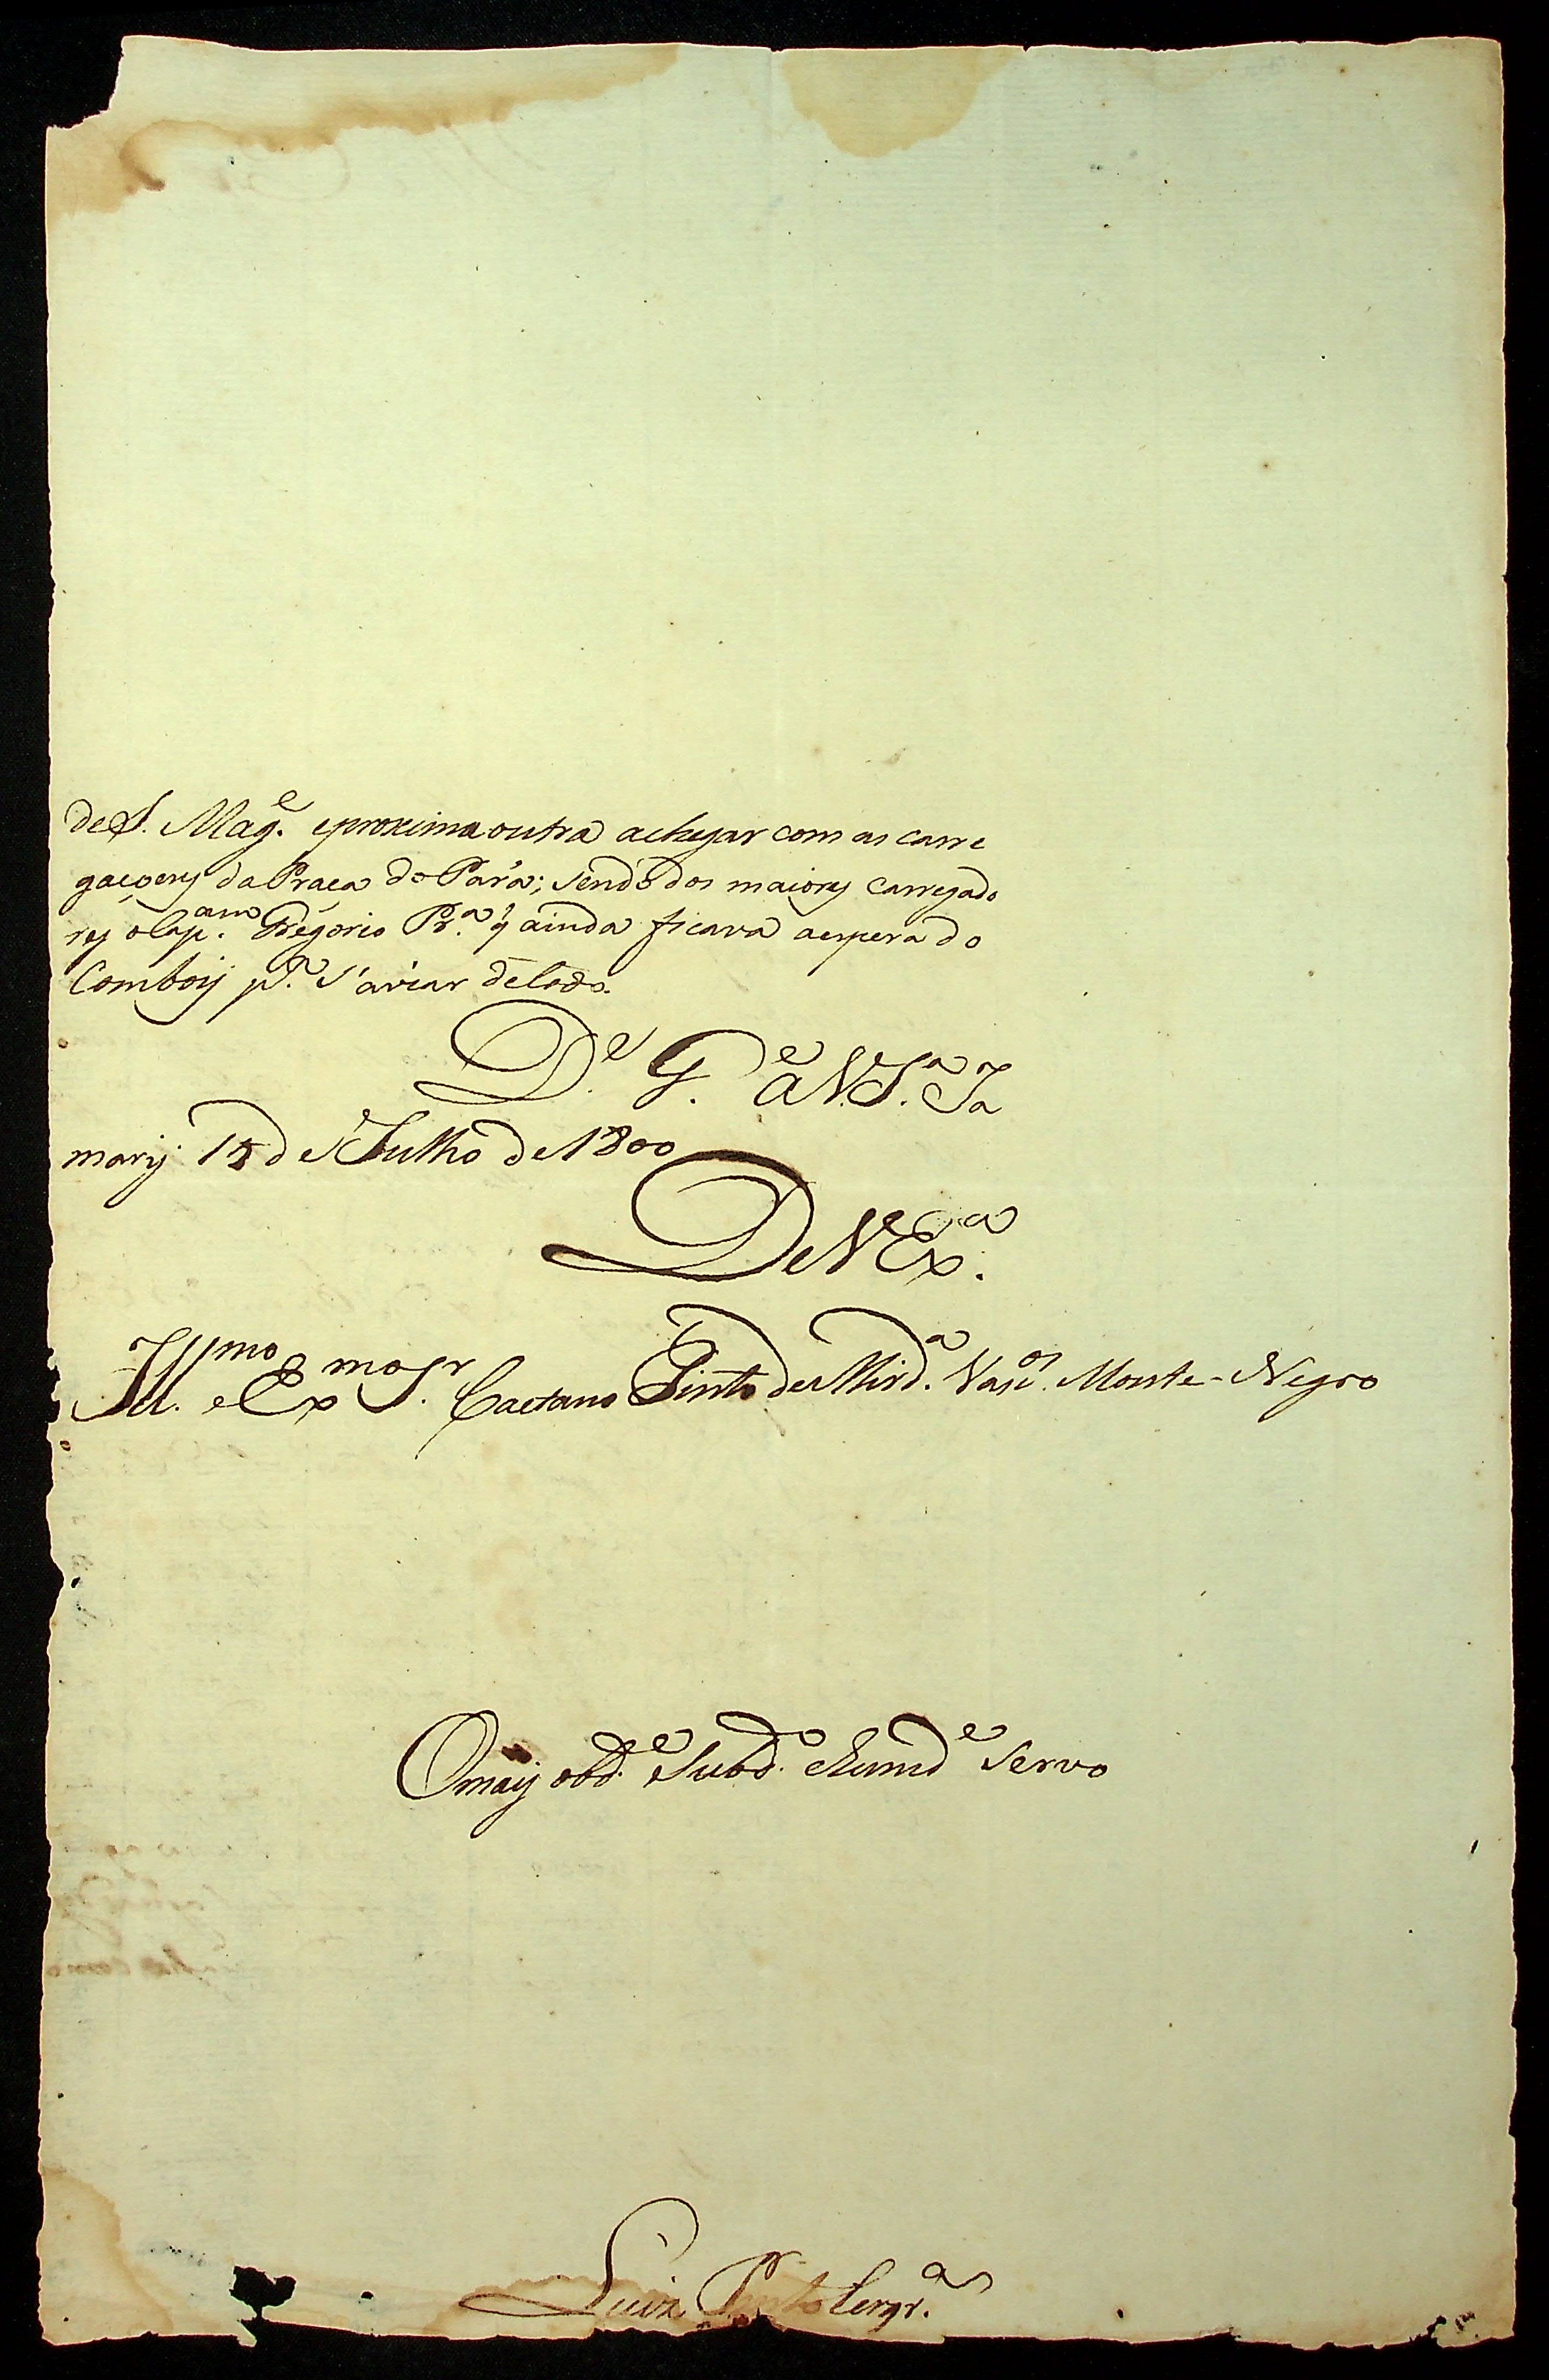 de S. Mag.e e proxima outra a chegar com as carre
gaçoens da Praça do Pará; sendo dos maiores carregado
res o Cap.am Gregorio Pr.a q̃ ainda ficava a espera do
Comboij p.a s'aviar de todo.
D.e G.e a V. S.a Ja
marij de Julho de 1800
De V Ex.a
Ill.mo e Ex.mo S.r Caetano Pinto de Mird.a Vasc.os Monte-Negro
O maij obd.e e Subd.o e humd.e Servo
Luiz Pinto Cerqr.a